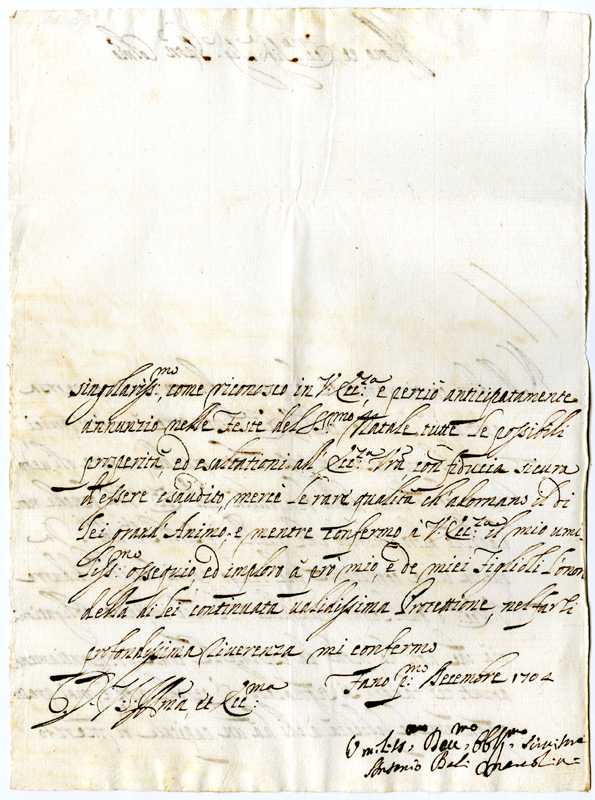 singolariss:mo, come riconosco in V: Ecc:za e perciò anticipatamente
annunzio nelle Feste del SSmo Natale tutte le possibili
prosperità, ed esaltationi all' Ecc:za Vra, con fiducia sicura
d'essere esaudito, mercè le rare qualità ch'adornano il di
lei grand'Animo. e mentre confermo à V: Ecc:za il mio umi
liss:mo ossequio, ed imploro à prò mio, e de miei Figlioli l'onor
della di lei continuata validissima Protettione, nel farli
profondissima riverenza mi confermo
Di V: Illma, et Ecc:ma Fano p:mo Decembre 1704
Umiliss:mo Dev:mo Obblig:mo Servitore
Antonio